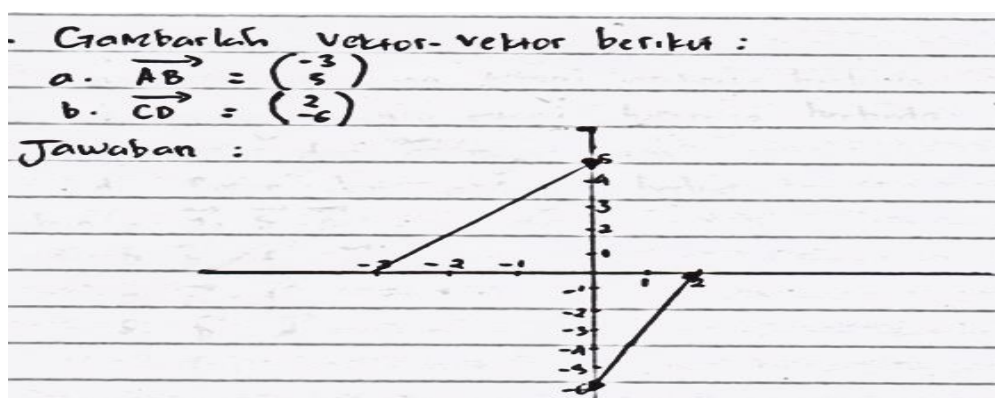 Gambarlah vektor-vektor berikut :
a. AB = (-3 5)
b. CD = (2 -6)
Jawaban :
5
4
3
2
1
-3 -2 -1 1 2
-1
-2
-3
-4
-5
-6